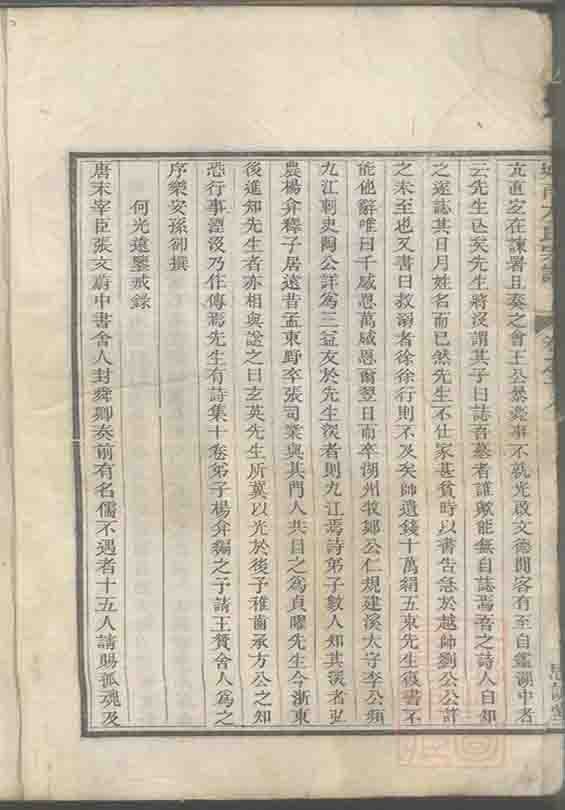 亢直交在諫署且奏之會王公暴薨事不就光啟文德間客有至自鑑湖中者
云先生已矣先生將沒謂其子曰誌吾墓者誰歟能無自誌焉吾之詩人自知
之遂誌其日月姓名而已然先生不仕家甚貧時以書告急於越帥劉公公許
之未至也又書曰救溺者徐徐行則不及矣帥遺錢十萬絹五束先生復書不
能他辭唯曰千感恩萬感恩爾翌日而卒湖州牧鄭公仁規建溪太守李公頻
九江刺史陶公詳爲三益友於先生深者則九江焉詩弟子數人知其深者弘
農楊弇釋子居遠昔孟東野卒張司業與其門人共目之爲貞曜先生今浙東
後進知先生者亦相與諡之曰玄英先生所冀以光於後予稚齒承方公之知
恐行事湮沒乃作傳焉先生有詩集十卷弟子楊弇編之予請王贊舍人爲之
序樂安孫郃撰
何光遠鑒戒錄
唐末宰臣張文蔚中書舍人封舜卿奏前有名儒不遇者十五人請賜孤魂及